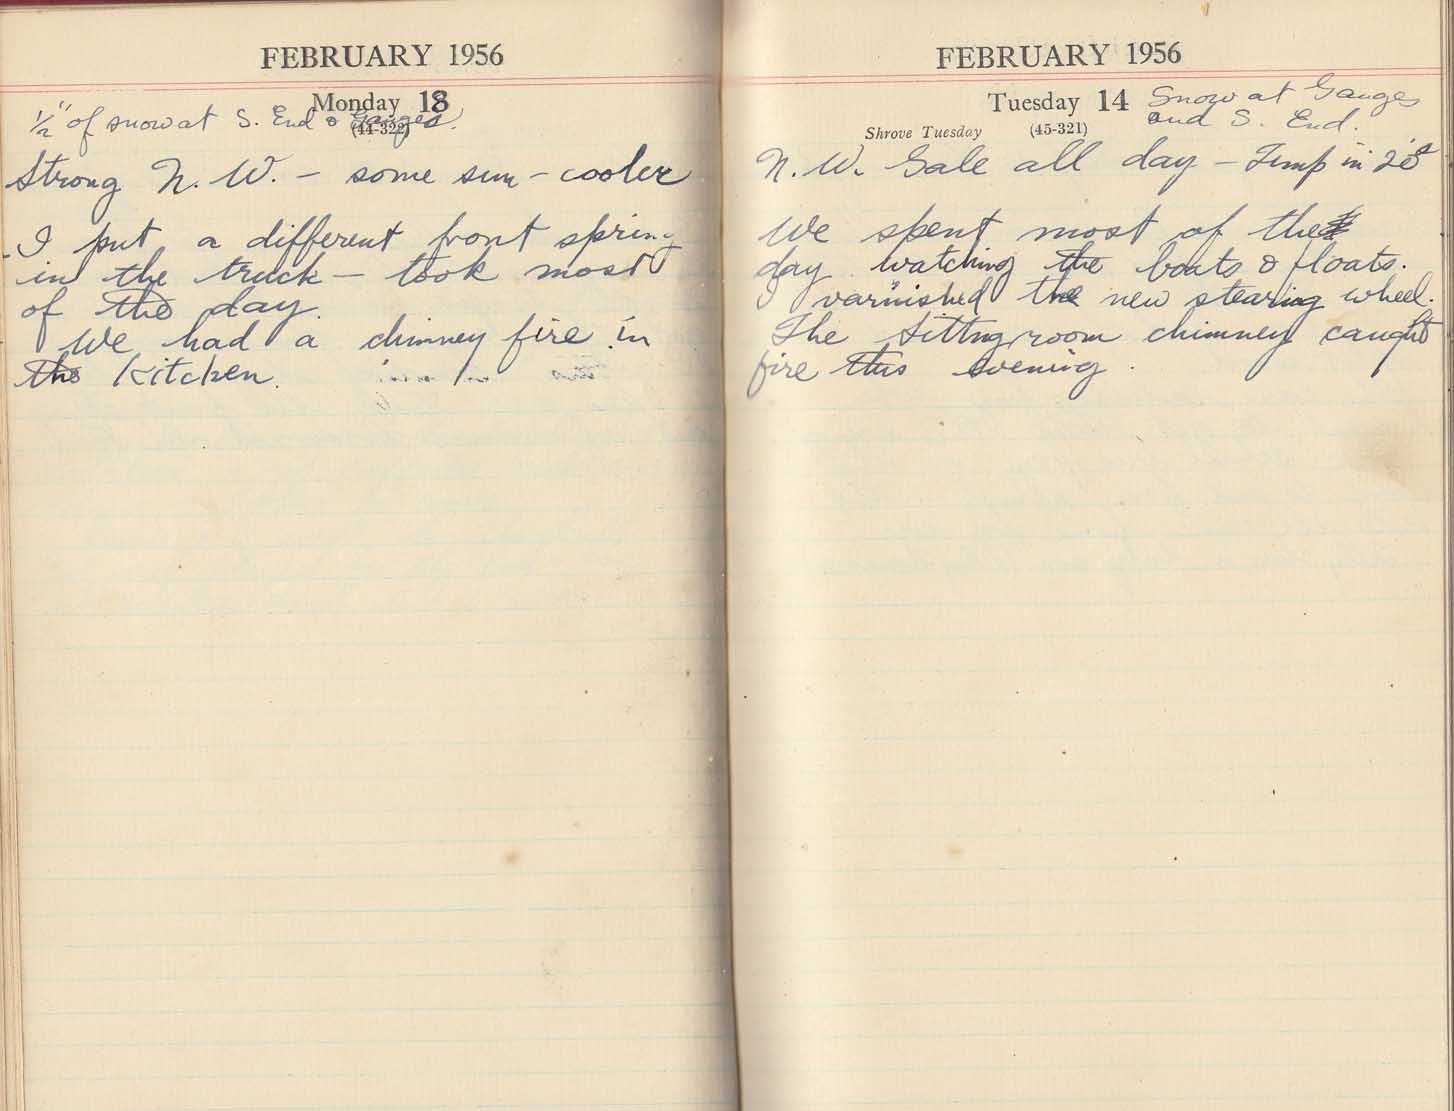 FEBRUARY 1956
Monday 13
½" of snow at S. End & Ganges.
(44-322)
Strong N. W. — some sun — cooler
I put a different front spring
in the truck — took most
of the day.
We had a chimney fire in
the kitchen.
FEBRUARY 1956
Tuesday 14 Snow at Ganges
and S. End.
Shrove Tuesday (45-321)
N. W. Gale all day — Temp in 20s
We spent most of the
day watching the boats & floats.
I varnished the new stearing wheel.
The sitting room chimney caught
fire this evening.